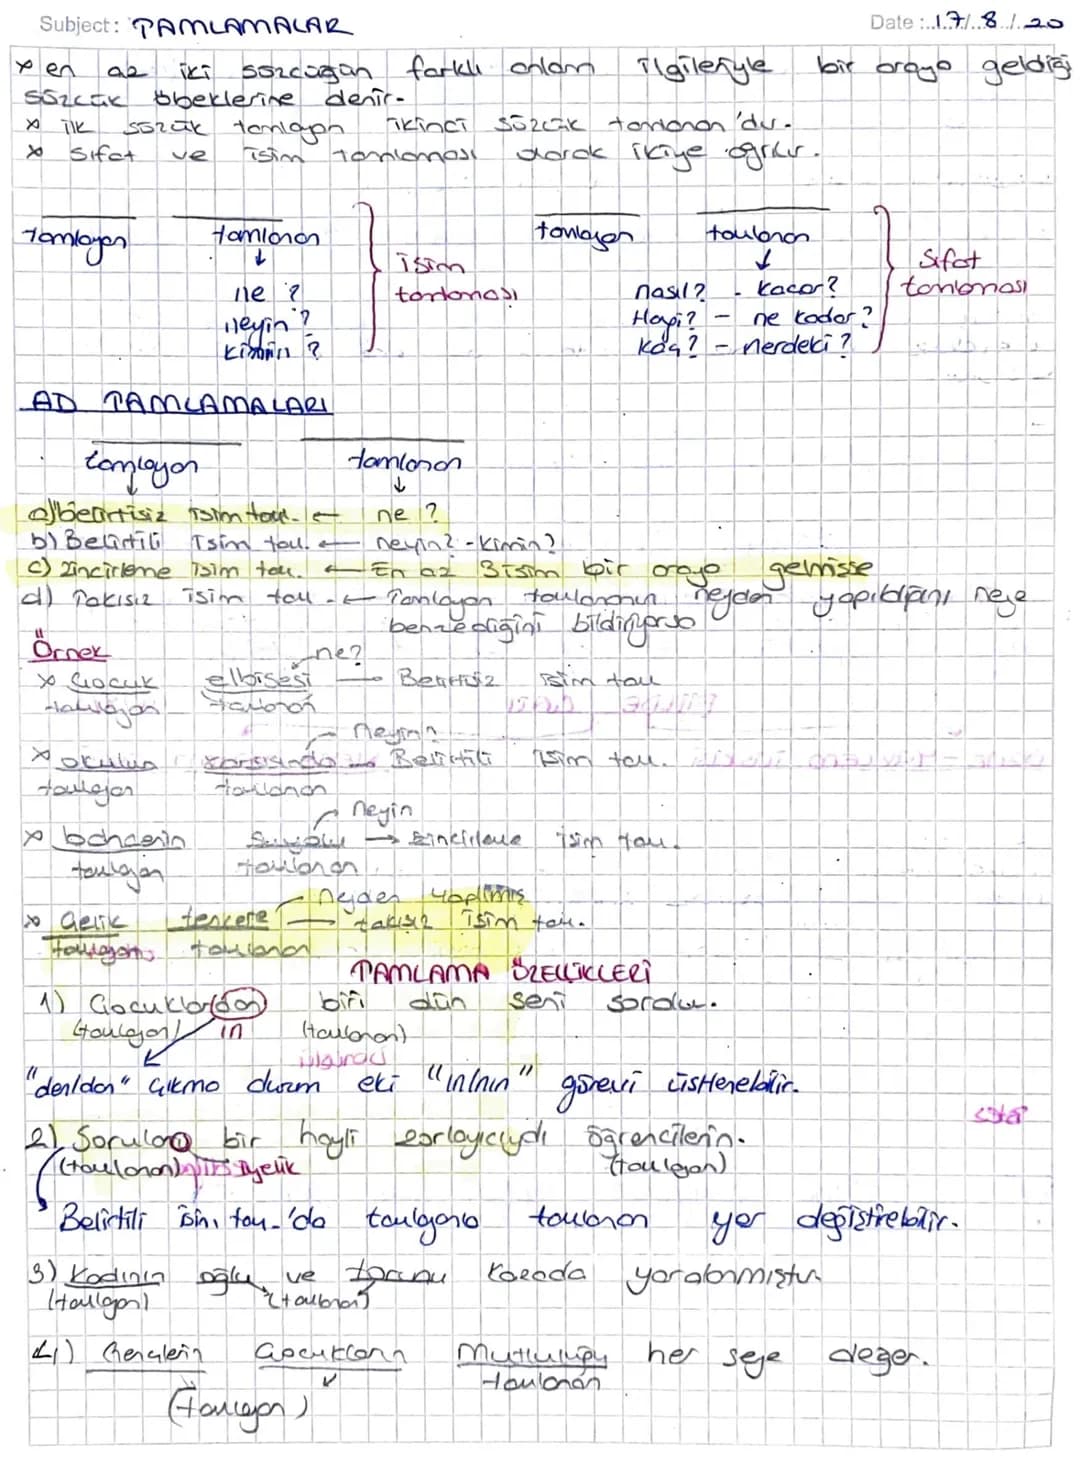 Subject: TAMLAMALAR Date: 17/8/20
x en az iki sözcüğün farklı anlam ilgileriyle bir araya geldiği
sözcük öbeklerine denir.
x ilk sözcük tamlayan ikinci sözcük tamlanan'dır.
x Sıfat ve isim tamlaması olarak ikiye ayrılır.
tamlayan tamlanan tamlayan tamlanan
↓ ↓
isim tamlaması
Sıfat tamlaması
ne? nasıl? - kaçar?
neyin? Hangi? - ne kadar?
kimin? kaç? - nerdeki?
AD TAMLAMALARI
tamlayan tamlanan
↓ ↓
a) belirtisiz isim tam. ← ne?
b) Belirtili isim tam. ← neyin? - kimin?
c) Zincirleme isim tam. ← En az 3 isim bir araya gelmişse
d) Takısız isim tam. ← Tamlayan tamlananın neyden yapıldığını neye
benzediğini bildiriyorsa
Örnek
ne?
x Çocuk elbisesi → Belirtisiz isim tam
tamlayan tamlanan
Neyin?
x okulun karşısında → Belirtili isim tam.
tamlayan tamlanan
Neyin
x bahçenin → zincirleme isim tam.
tamlayan tamlanan
Neyden yapılmış
x Çelik tencere → takısız isim tam.
tamlayan tamlanan
TAMLAMA ÖZELLİKLERİ
1) Çocuklardan biri dün seni sordu.
(tamlayan) ın (tamlanan)
"den/dan" çıkma durum eki "ın/nın" görevi üstlenebilir.
2) Soruları bir hayli zorlayıcıydı öğrencilerin.
(tamlanan) iyelik (tamlayan)
Belirtili isim tam.'da tamlayanla tamlanan yer değiştirebilir.
3) Kadının oğlu ve torunu kazada yaralanmıştır
(tamlayan) (tamlanan)
4) Gençlerin çocukların Mutluluğu her şeye değer.
tamlanan
(tamlayan)